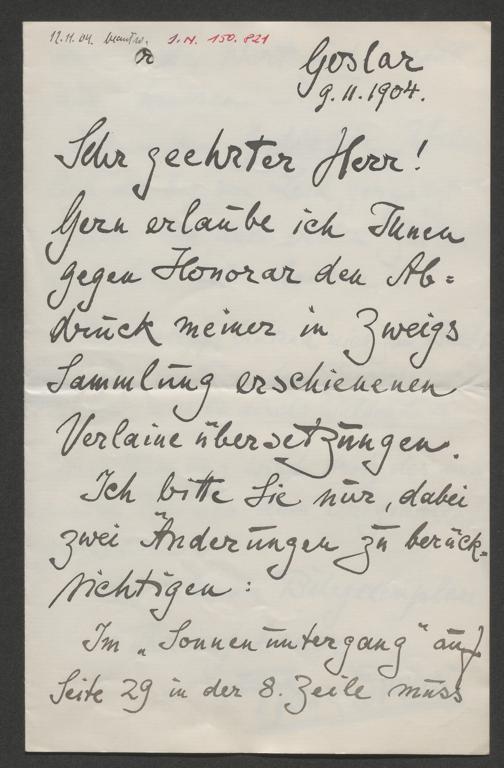 12.11.04. beantw. I.N. 150.821
Goslar
9.11.1904.
Sehr geehrter Herr!
Gern erlaube ich Ihnen
gegen Honorar den Ab=
druck meiner in Zweigs
Sammlung erschienenen
Verlaine übersetzungen.
Ich bitte Sie nur, dabei
zwei Änderungen zu berück=
sichtigen:
Im „Sonnenuntergang" auf
Seite 29 in der 8. Zeile muss